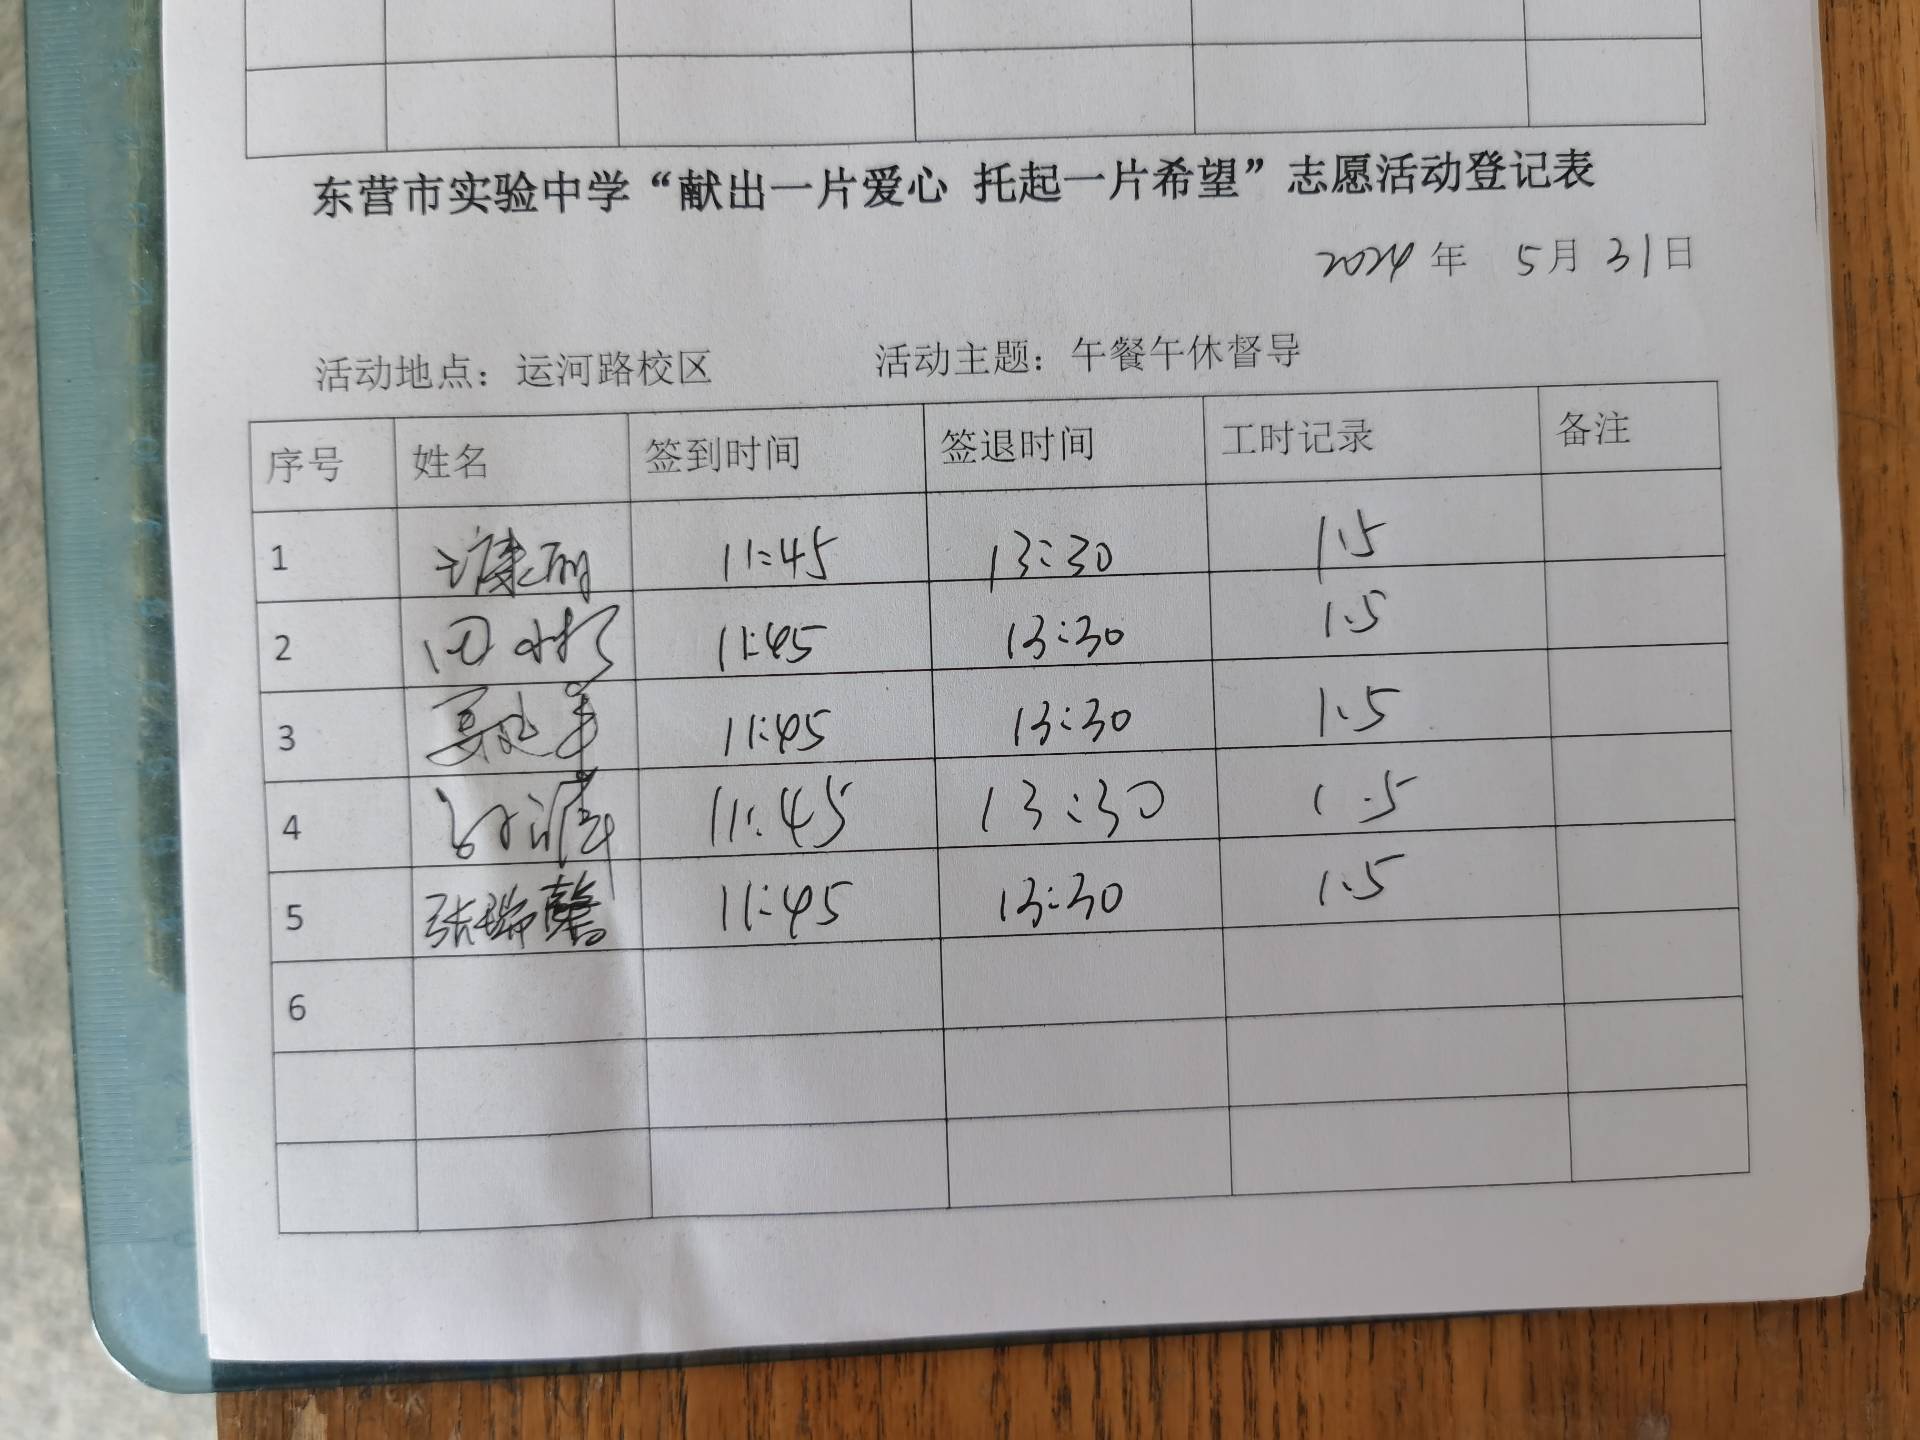 东营市实验中学“献出一片爱心 托起一片希望”志愿活动登记表
2024年 5月31日
活动地点：运河路校区 活动主题：午餐午休督导
序号 姓名 签到时间 签退时间 工时记录 备注
1 11:45 13:30 1.5
2 田 11:45 13:30 1.5
3 11:45 13:30 1.5
4 11:45 13:30 1.5
5 张瑞馨 11:45 13:30 1.5
6